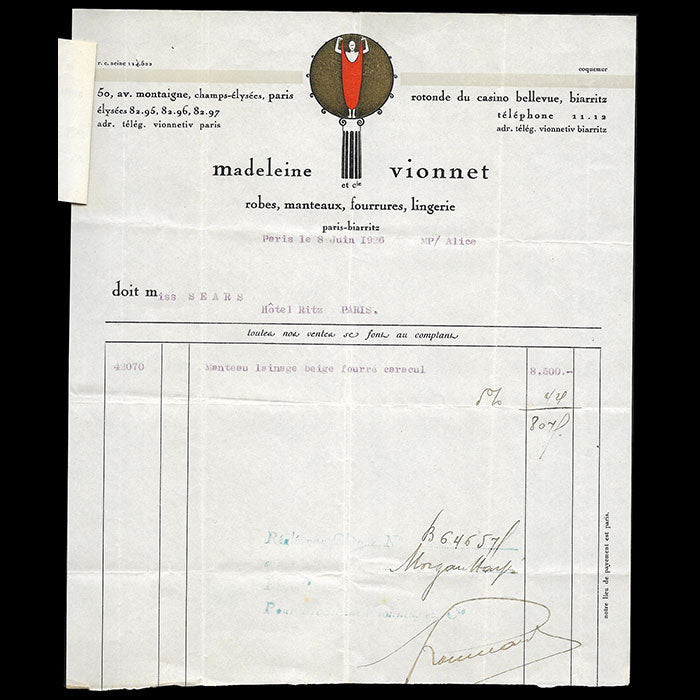 r. c. seine 114.522
coquemer
50, av. montaigne, champs-élysées, paris
élysées 82.95, 82.96, 82.97
adr. télég. vionnetiv paris
rotonde du casino bellevue, biarritz
téléphone 11.12
adr. télég. vionnetiv biarritz
madeleine vionnet
et cie
robes, manteaux, fourrures, lingerie
paris-biarritz
Paris le 8 Juin 1926 MP/ Alice
doit miss SEARS
Hôtel Ritz PARIS.
toutes nos ventes se font au comptant
42070 Manteau lainage beige fourré caracul 8.500.-
5%
Réglé par Chèque N° B 64657
Morgan
notre lieu de payement est paris.